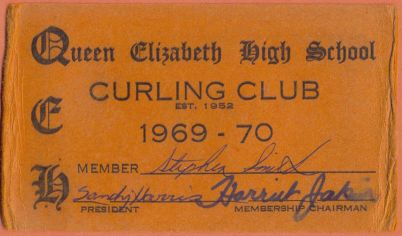 Queen Elizabeth High School
CURLING CLUB
EST. 1952
E
1969 - 70
H
MEMBER Stephen Smith
Sandy Harris Harriet
PRESIDENT MEMBERSHIP CHAIRMAN